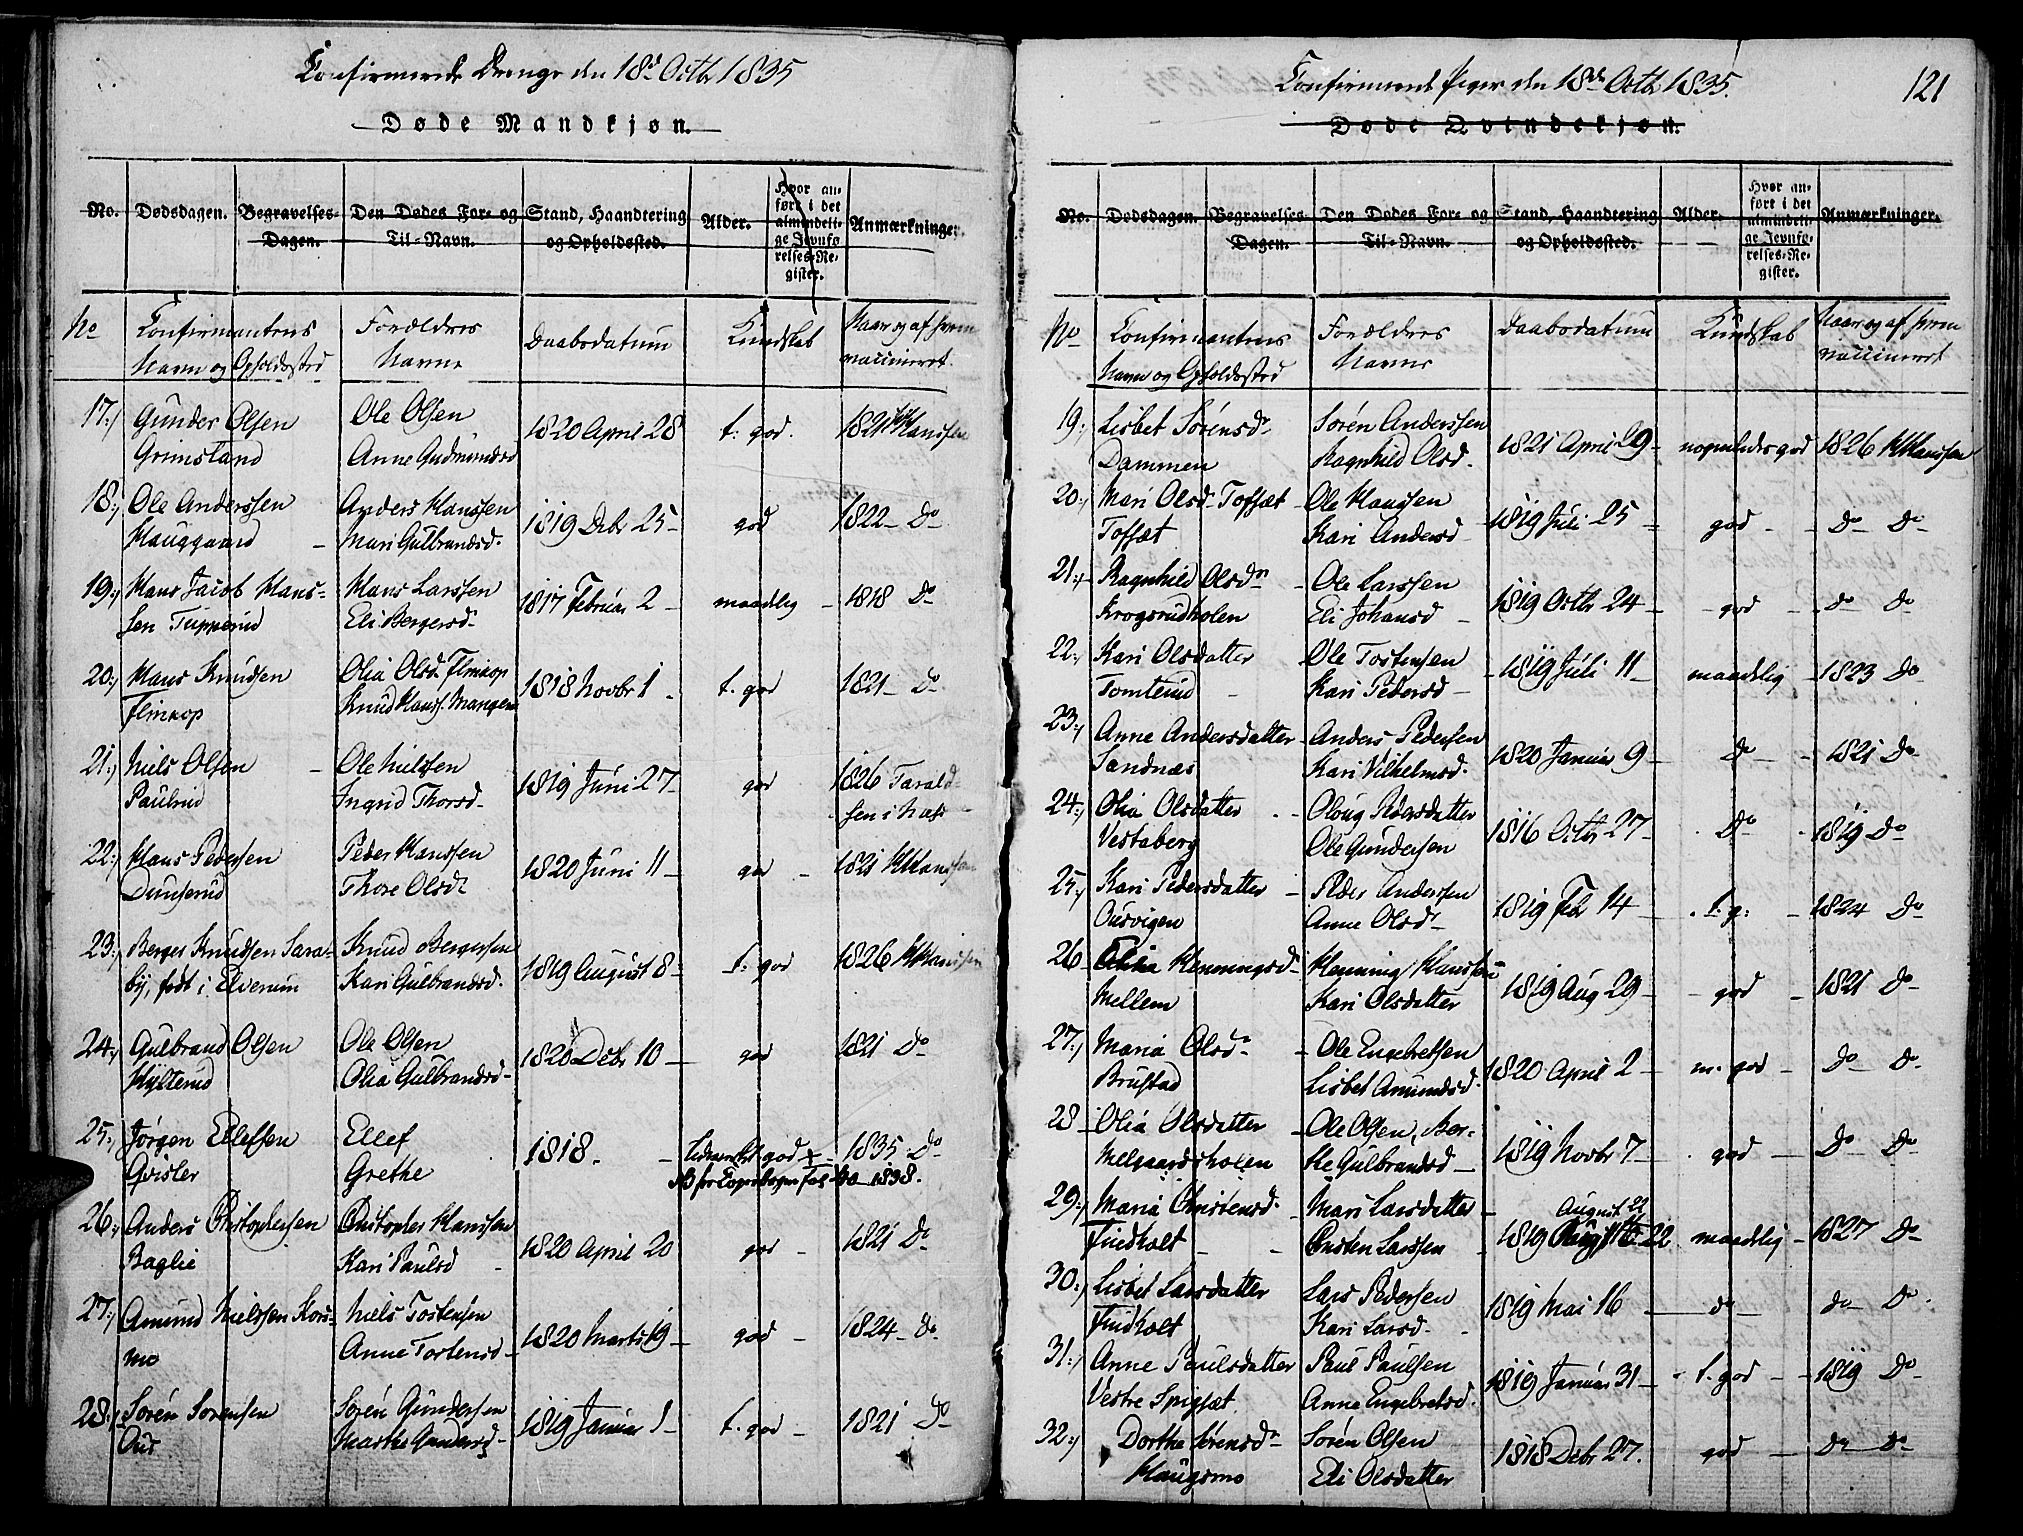 Confirmerede Drenge den 18d Octb 1835
Døde Mandkjøn.
No. Dødsdagen. Begravelses-Dagen. Den Dødes For- og Til-Navn. Stand, Haandtering og Opholdssted. Alder. Hvor anført i det almindelige Jevnførelses-Register. Anmærkninger.
No Confirmantens Navn og Opholdssted Forældres Navne Daabsdatum Kundskab Naar og af hvem vaccineret
17:) Gunder Olsen Ole Olsen 1820 April 28 t: god. 1821 Hanssen
Grimsland Anne Gudmundsd
18:) Ole Anderssen Anders Hanssen 1819 Debr 25 - god 1822 - Do
Hauggaard - Mari Gulbrandsd.
19:) Hans Jacob Hans- Hans Larssen 1817 Februar 2 - maadelig - 1818 Do
sen Tupperud Eli Bergersd.
20:) Hans Knudsen Olia Olsd. Flinkop 1818 Novbr 1 - t. god 1821 - Do
Flinkop Knud Hanss. Mangen
21:) Niels Olsen - Ole Nielsen 1819 Juni 27 - god 1826 Tarald-
Paulrud Ingrid Thorsd - sen i
22:) Hans Pedersen Peder Hanssen 1820 Juni 11 - god - 1821 HHanssen
Dunserud Thore Olsdr
23:) Berger Knudsen Sara- Knud Bergersen 1819 August 8 - t: god 1826 HHanssen
by, født i Elverum Kari Gulbrandsd.
24:) Gulbrand Olsen Ole Olsen 1820 Debr 10 - god 1821 Do
Hylterud Olia Gulbrandsd -
25:) Jørgen Ellefsen Ellef 1818. - god + - 1835 Do
Qvisler Grethe 1838.
26:) Anders Christophersen Christopher Hanssen 1820 April 20 god - 1821 Do
Baglie Kari Paulsd -
27:) Amund Nielssen Kors- Niels Tostensen 1820 Marts 19 - god - 1824 - Do
mo Anne Tortensd -
28:) Søren Sørensen Søren Gundersen 1819 Januar 1 - t. god - 1821 Do
Aus Marthe Gundersd -
Confirmerede Piger den 18de Octb 1835.
121
Døde Qvindekjøn.
No. Dødsdagen. Begravelses-Dagen. Den Dødes For- og Til-Navn. Stand, Haandtering og Opholdssted. Alder. Hvor anført i det almindelige Jevnførelses-Register. Anmærkninger.
No Confirmantens Navn og Opholdssted Forældres Navne Daabsdatum Kundskab Naar og af hvem vaccineret
19:) Lisbet Sørensdr Søren Anderssen 1821 April 29 - nogenledes god 1826 HHanssen
Dammen Ragnhild Olsd.
20:) Mari Olsd Toffæt Ole Hanssen 1819 Juli 25 - god - - Do Do
Toffæt Kari Andersd -
21:) Ragnhild Olsdr - Ole Larssen 1819 Octbr 24 - - god - Do Do
Krogsrudholen Eli Johansd -
22:) Kari Olsdatter Ole Tostensen 1819 Juli 11 - maadelig - 1823 Do
Tomterud - Kari Pedersd -
23:) Anne Andersdatter Anders Pedersen 1820 Januar 9 - Do - - 1821 Do
Sandnæs Kari Vilhelmsd.
24:) Olia Olsdatter - Oloug Pedersdatter 1816 Octbr 27 - Do - 1819 Do
Vestaberg Ole Gundersen
25:) Kari Pedersdatter - Peder Andersen 1819 Feb 14 - t. g: - 1824 Do
Ousvigen Anne Olsdr
26 Olia Henningsd - Henning Hanssen 1819 Aug 29 - - god - 1821 Do
Mellem Kari Olsdatter
27:) Maria Olsdr - Ole Engebretsen 1820 April 2 - m. god - Do Do
Brustad Lisbet Amundsd.
28 Olia Olsdatter - Ole Olsen, Ber- 1819 Novbr 7 - god - Do Do
Melgaardsholen the Gulbrandsd -
29:) Maria Christensd. - Mari Larsdatter - August 22
Findholt - - Christen Larssen - 1819 22 maadelig - 1827 Do
30:) Lisbet Larsdatter Lars Pedersen 1819 Mai 16 - do - do Do
Findholt Kari Larsd. -
31:) Anne Paulsdatter Paul Paulsen 1819 Januar 31 - t. god - - 1819 Do
Vestre Spigsæt Anne Engebretsd.
32:) Dorthe Sørensdr Søren Olsen 1818 Debr 27. god - Do Do
Haugsmo Eli Olsdatter